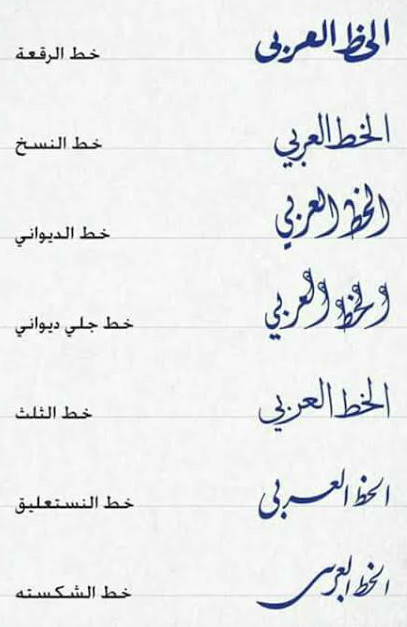 الخط العربي خط الرقعة
الخط العربي خط النسخ
الخط العربي خط الديواني
الخط العربي خط جلي ديواني
الخط العربي خط الثلث
الخط العربي خط النستعليق
الخط العربي خط الشكسته